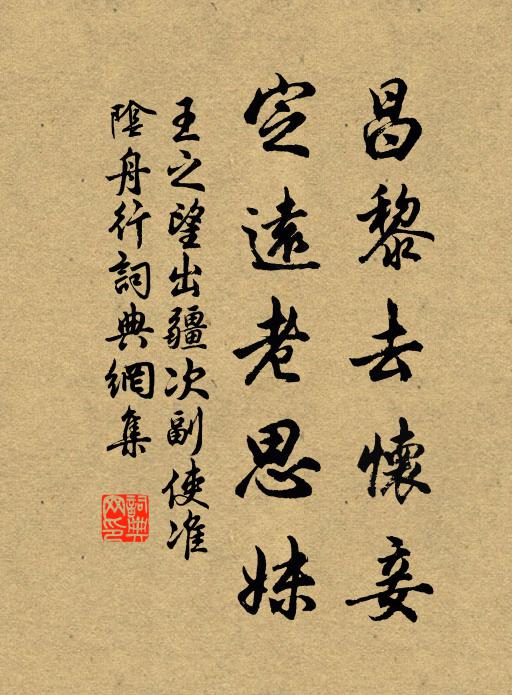 昌黎去懷妾
定遠老思妹
王之望出疆次副使淮
陰舟行詞典網集
詞典網印